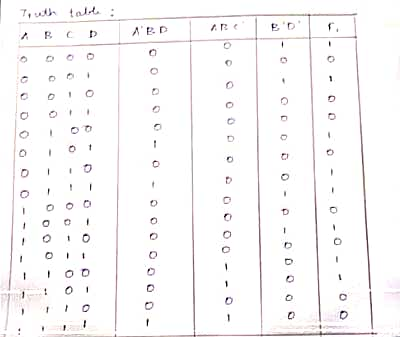 Truth table :
A B C D A'BD ABC' B'D' F1
0 0 0 0 0 0 1 1
0 0 0 1 0 0 0 0
0 0 1 0 0 0 1 1
0 0 1 1 0 0 0 0
0 1 0 0 0 0 0 0
0 1 0 1 1 0 0 1
0 1 1 0 0 0 0 0
0 1 1 1 1 0 0 1
1 0 0 0 0 0 1 1
1 0 0 1 0 0 0 0
1 0 1 0 0 0 1 1
1 0 1 1 0 0 0 0
1 1 0 0 0 1 0 1
1 1 0 1 0 1 0 1
1 1 1 0 0 0 0 0
1 1 1 1 1 1 0 0